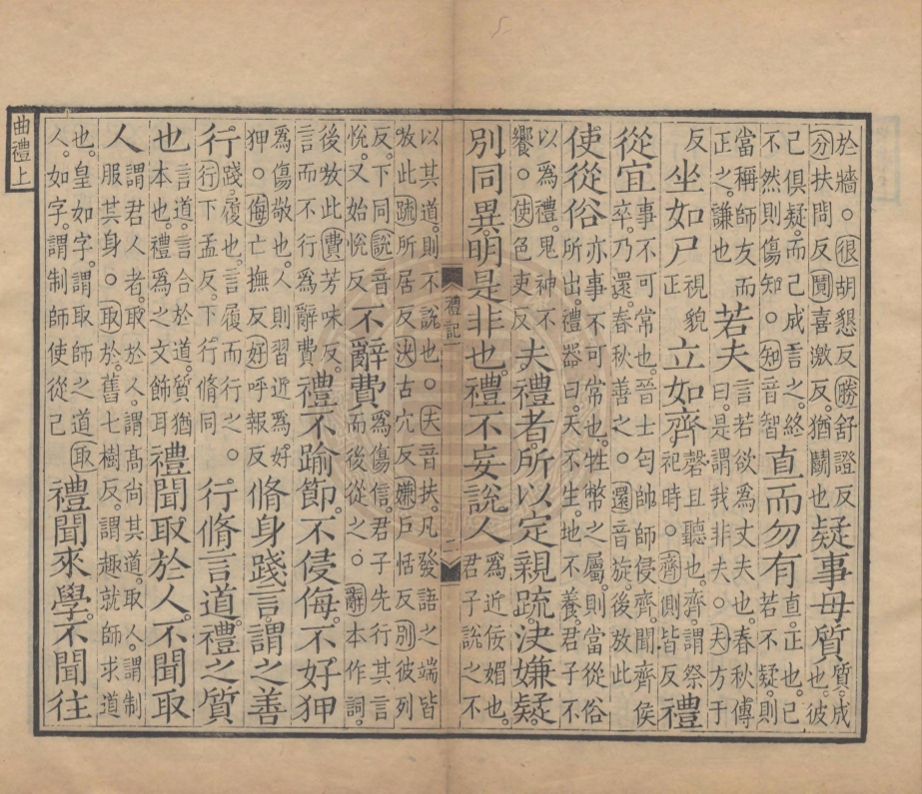 於牆。○很胡懇反勝舒證反分扶問反鬩喜激反。猶鬬也疑事毋質質。成也。彼
己俱疑。而己成言之。終不然則傷知。○知音智直而勿有直。正也。己若不疑。則
當稱師友而正之。謙也若夫言若欲爲丈夫也。春秋傳曰。是謂我非夫。○夫方于
反坐如尸視貌正立如齊磬且聽也。齊。謂祭祀時。○齊側皆反禮
從宜事不可常也。晉士匄帥師侵齊。聞齊侯卒。乃還。春秋善之。○還音旋後放此
使從俗亦事不可常也。牲幣之屬。則當從俗所出。禮器曰。天不生。地不養。君子不
以爲禮。鬼神不饗。○使色吏反夫禮者。所以定親疏。決嫌疑。
別同異。明是非也。禮不妄說人爲近佞媚也。君子說之不
禮記一
二
以其道。則不說也。○夫音扶。凡發語之端皆放此疏所居反決古穴反嫌戶恬反別彼列
反。下同說音悅。又始悅反不辭費爲傷信。君子先行其言而後從之。○辭本作詞。
後放此費芳味反。言而不行爲辭費禮不踰節。不侵侮。不好狎
爲傷敬也。人則習近爲好狎。○侮亡撫反好呼報反脩身踐言。謂之善
行。踐。履也。言履而行之。○行下孟反。下行脩同行脩言道。禮之質
也言道。言合於道。質猶本也。禮爲之文飾耳禮聞取於人。不聞取
人謂君人者。取於人。謂高尚其道。取人。謂制服其身。○取於。舊七樹反。謂趣就師求道
也。皇如字。謂取師之道取人。如字。謂制師使從己禮聞來學。不聞往
曲禮上